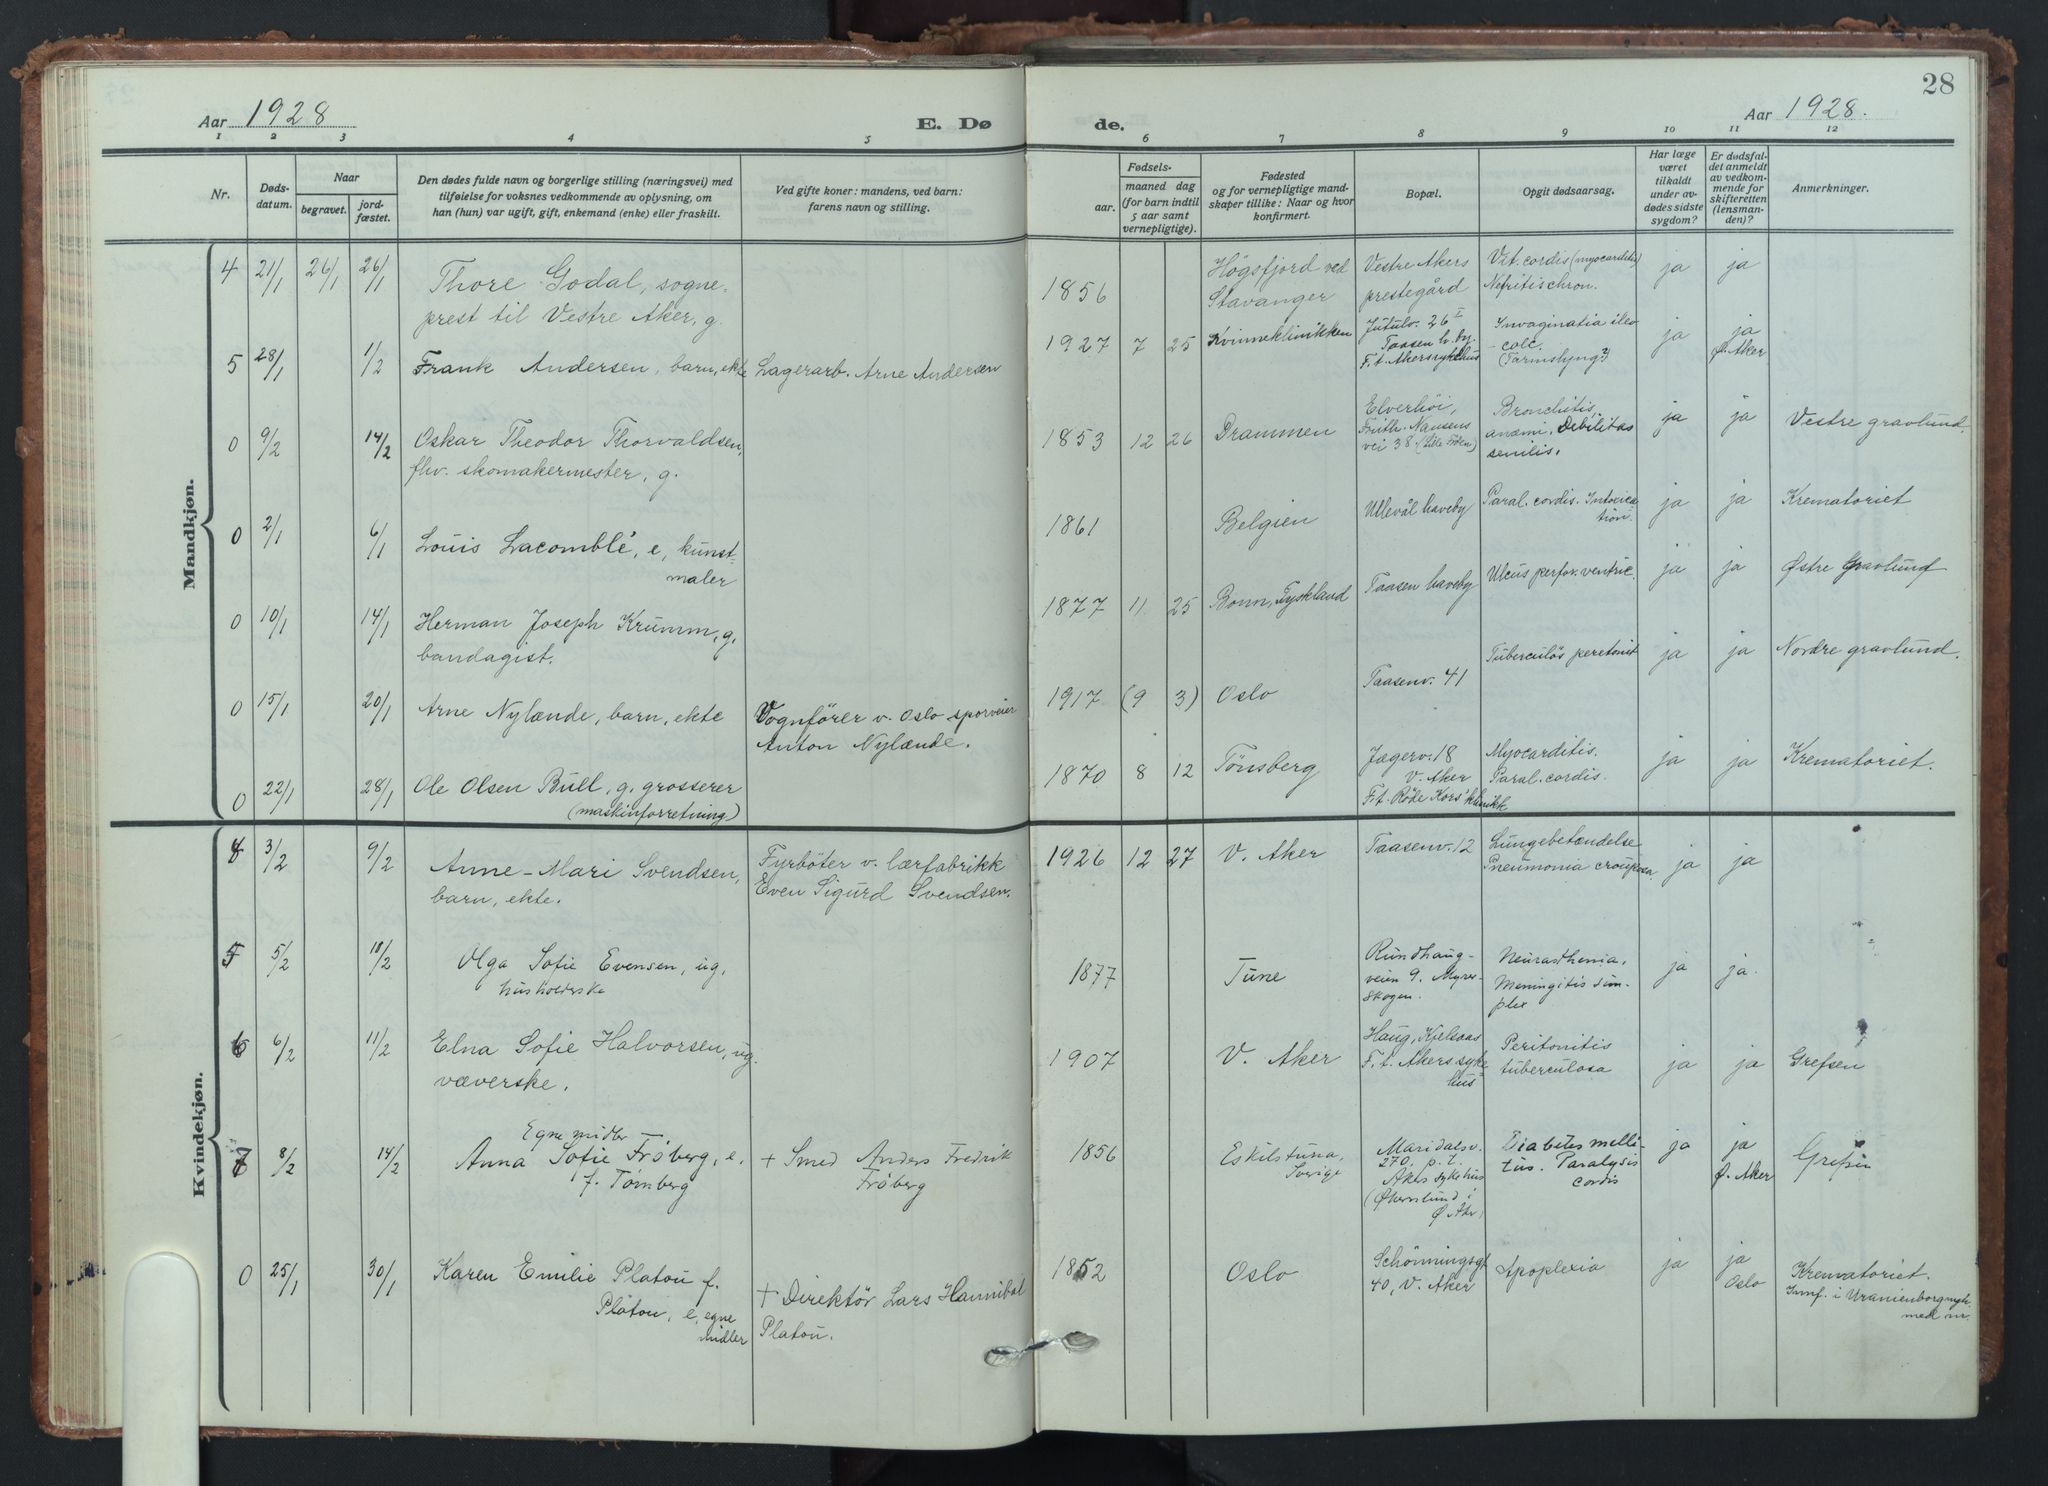 28
Aar 1928
E. Døde.
Aar 1928.
1 2 3 4 5 6 7 8 9 10 11 12
Nr.
Døds-
datum.
Naar
begravet.
jord-
fæstet.
Den dødes fulde navn og borgerlige stilling (næringsvei) med
tilføielse for voksnes vedkommende av oplysning, om
han (hun) var ugift, gift, enkemand (enke) eller fraskilt.
Ved gifte koner: mandens, ved barn:
farens navn og stilling.
Fødsels-
aar.
maaned dag
(for barn indtil
5 aar samt
vernepligtige).
Fødested
og for vernepligtige mand-
skaper tillike: Naar og hvor
konfirmert.
Bopæl.
Opgit dødsaarsag.
Har læge
været
tilkaldt
under av-
dødes sidste
sygdom?
Er dødsfal-
det anmeldt
av vedkom-
mende for
skifteretten
(lensman-
den)?
Anmerkninger.
Mandkjøn.
4 21/1 26/1 26/1
Thore Godal, sogne-
prest til Vestre Aker, g.
1856
Högsfjord ved
Stavanger
Vestre Akers
prestegård
Vit. cordis (myocarditis)
Nefritis chron.
ja ja
5 28/1 1/2
Frank Andersen, barn, ekte
Lagerarb. Arne Andersen
1927 7 25
Kvinneklinikken
Jutulv. 26 I
Taasen h. by.
F. t. Akers sykehus
Invaginatia ileo
-colc.
(Tarmslyng?)
ja ja
Ø. Aker
0 9/2 14/2
Oskar Theodor Thorvaldsen,
fhv. skomakermester, g.
1853 12 26
Drammen
Elverhöi,
Fridtj. Nansens
vei 38 (Lille Frøen)
Bronchitis,
anæmi. Debilitas
senilis.
ja ja
Vestre gravlund.
0 2/1 6/1
Louis Lacomblé, e, kunst-
maler
1861
Belgien
Ullevål haveby
Paral. cordis. Intoxica
tion.
ja ja
Krematoriet
0 10/1 14/1
Herman Joseph Krumm, g.
bandagist.
1877 11 25
Bonn, Tyskland
Taasen haveby
Ulcus perfor. ventric.
ja ja
Østre Gravlund
0 15/1 20/1
Arne Nylænde, barn, ekte
Vognförer v. Oslo sporveier
Anton Nylænde.
1917 (9 3)
Oslo
Taasenv. 41
Tuberculös peretonit
ja ja
Nordre gravlund.
0 22/1 28/1
Ole Olsen Bull, g. grosserer
(maskinforretning)
1870 8 12
Tönsberg
Jægerv. 18
V. Aker
F. t. Röde Kors' klinikk
Myocarditis.
Paral. cordis.
ja ja
Krematoriet.
Kvindekjøn.
3/2 9/2
Anne-Mari Svendsen,
barn, ekte.
Fyrböter v. lærfabrikk
Even Sigurd Svendsen.
1926 12 27
V. Aker
Taasenv. 12
Lungebetændelse
Pneumonia crouposa
ja ja
5 5/2 10/2
Olga Sofie Evensen, ug.
husholderske
1877
Tune
Rundhaug-
veien 9. Myrer-
skogen.
Neurasthenia.
Meningitis sim-
plex
ja ja.
6 6/2 11/2
Elna Sofie Halvorsen, ug.
væverske.
1907
V. Aker
Haug, Kjelsaas
F. t. Akers syke
hus
Peritonitis
tuberculosa
ja ja
Grefsen
7 8/2 14/2
Egne midler
Anna Sofie Fröberg, e.
f. Törnberg
+ Smed Anders Fredrik
Fröberg
1856
Eskilstuna,
Sverige
Maridalsv.
270, p. t.
Akers sykehus
(Økernlund i
Ø. Aker)
Diabetes melli-
tus. Paralysis
cordis
ja ja
Ø. Aker
Grefsen
0 25/1 30/1
Karen Emilie Platou f.
Platou, e, egne
midler
+ Direktör Lars Hannibal
Platou.
1852
Oslo
Schönningsgt.
40, V. Aker
Apoplexia
ja ja
Oslo
Krematoriet.
i Uranienborg
med nr.